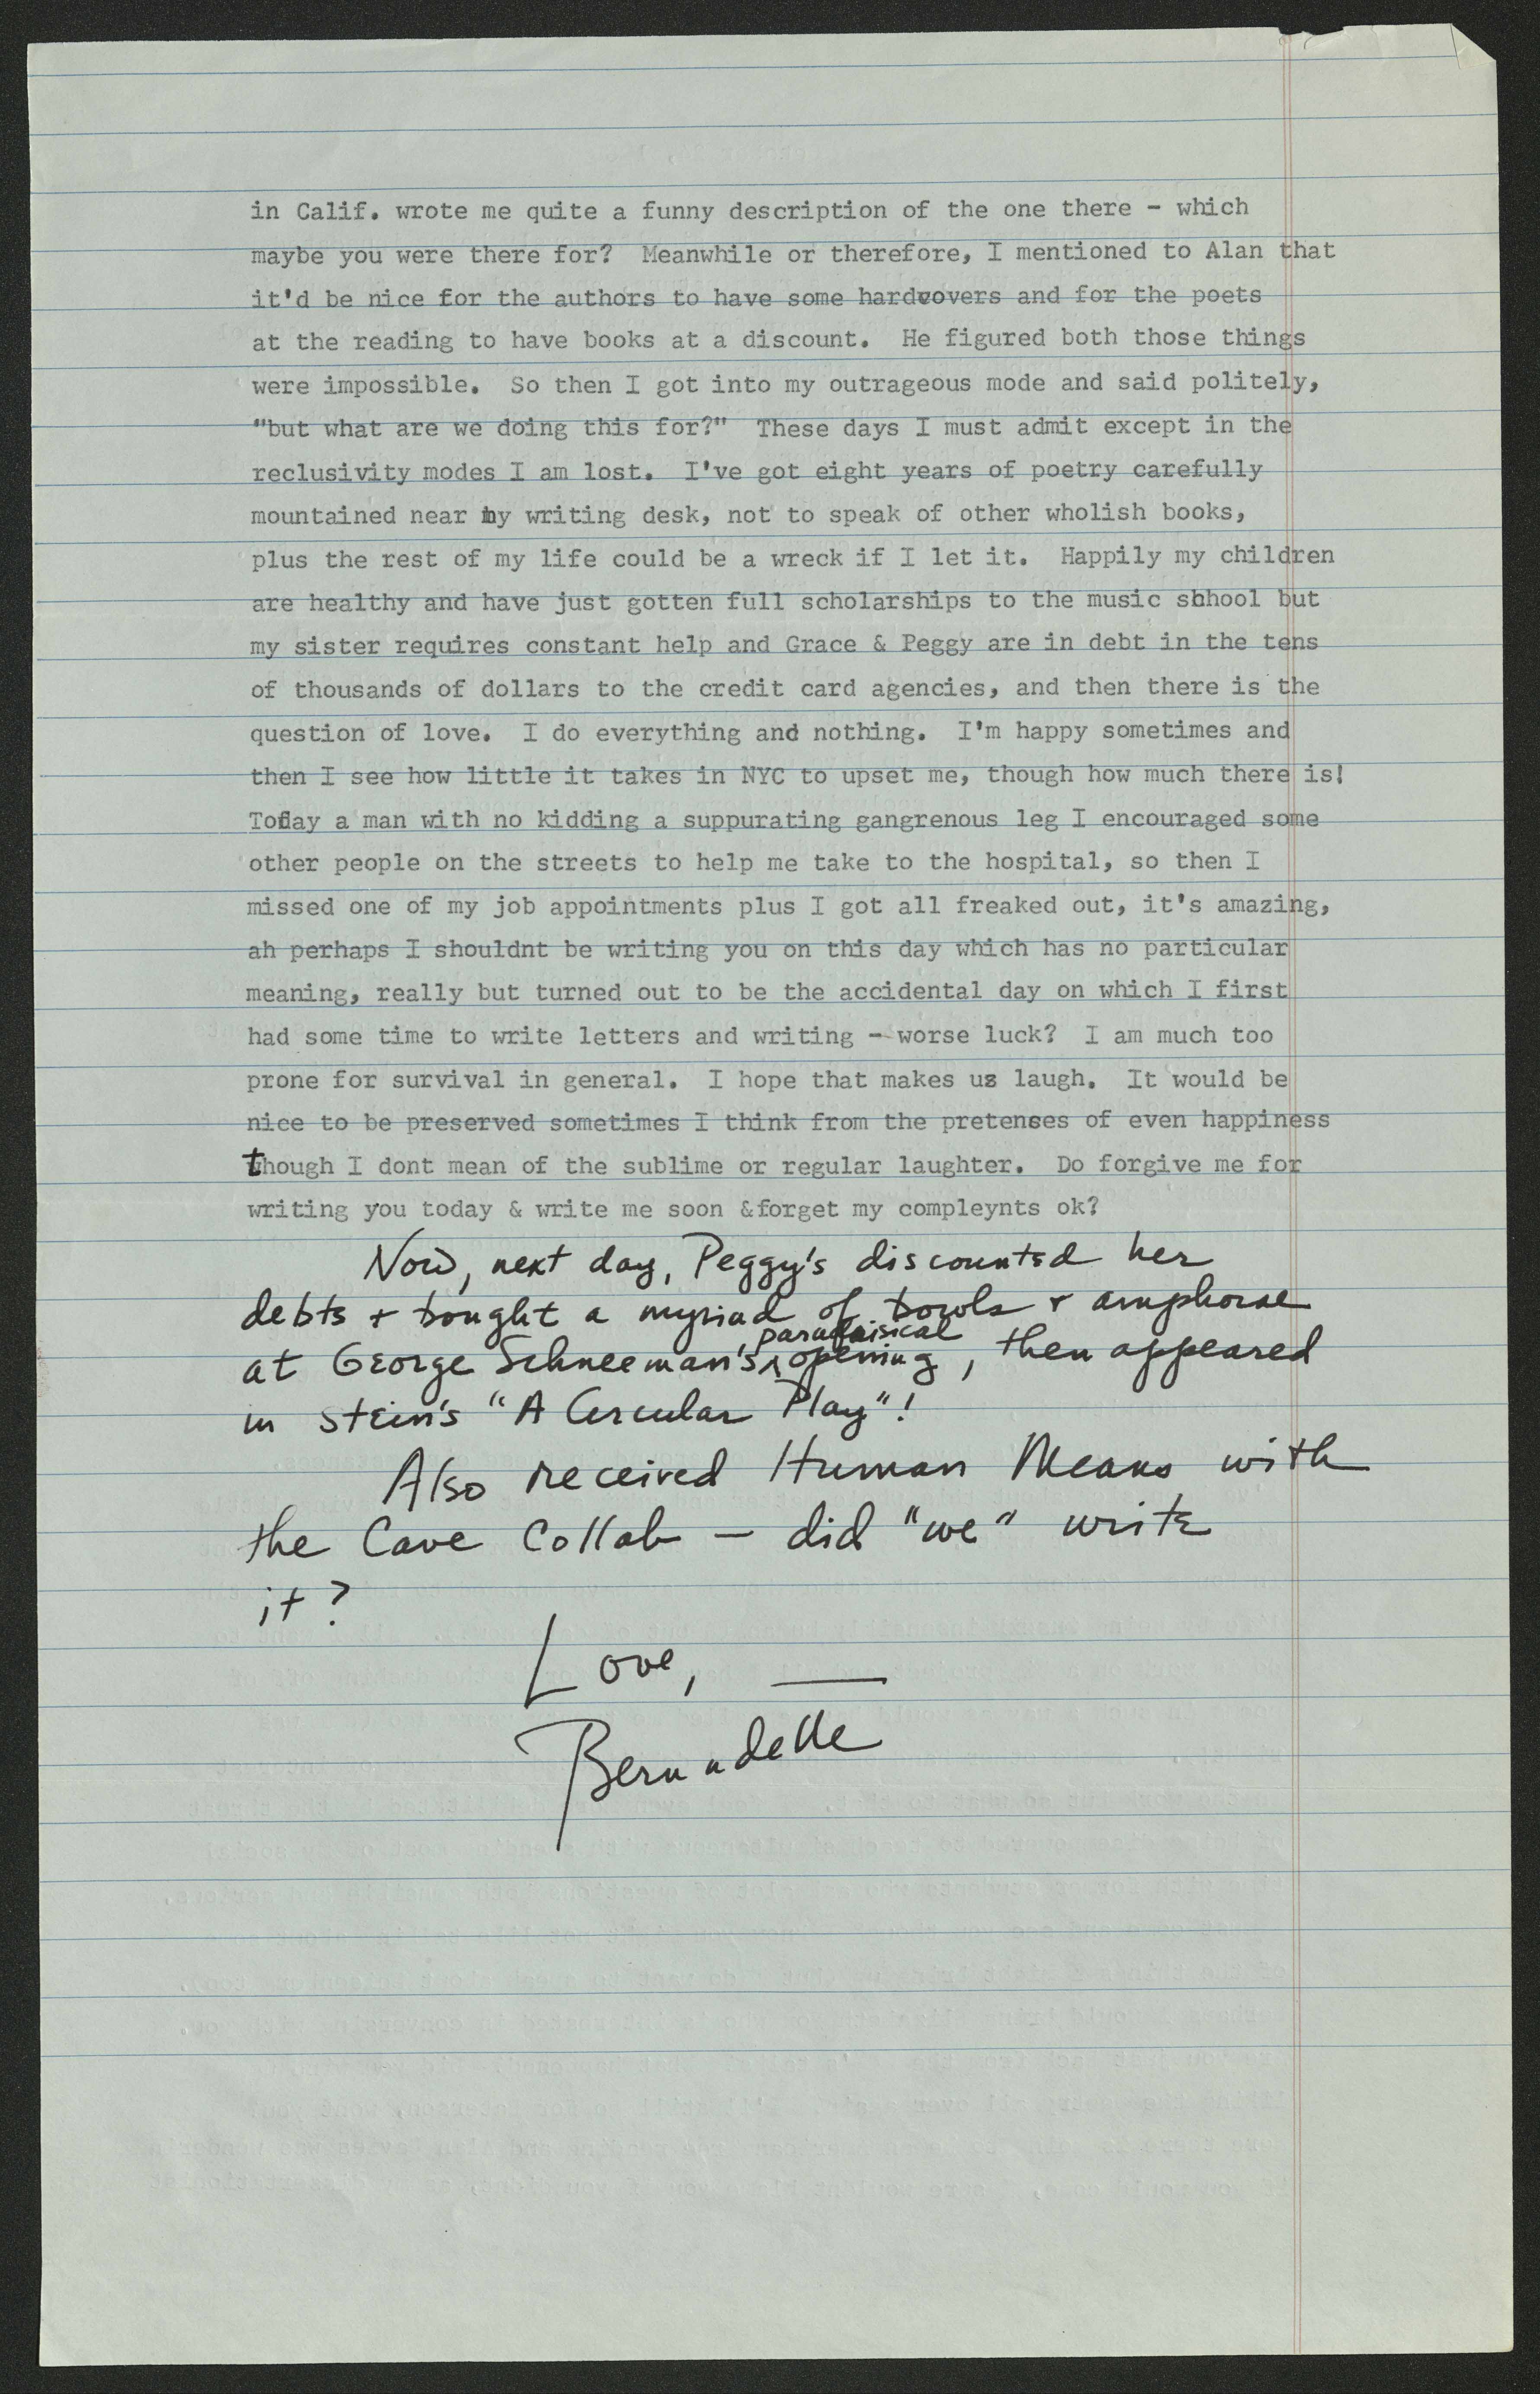 in Calif. wrote me quite a funny description of the one there - which
maybe you were there for?  Meanwhile or therefore, I mentioned to Alan that
it'd be nice for the authors to have some hardcovers and for the poets
at the reading to have books at a discount.  He figured both those things
were impossible.  So then I got into my outrageous mode and said politely,
"but what are we doing this for?"  These days I must admit except in the
reclusivity modes I am lost.  I've got eight years of poetry carefully
mountained near my writing desk, not to speak of other wholish books,
plus the rest of my life could be a wreck if I let it.  Happily my children
are healthy and have just gotten full scholarships to the music shhool but
my sister requires constant help and Grace & Peggy are in debt in the tens
of thousands of dollars to the credit card agencies, and then there is the
question of love.  I do everything and nothing.  I'm happy sometimes and
then I see how little it takes in NYC to upset me, though how much there is!
Today a man with no kidding a suppurating gangrenous leg I encouraged some
other people on the streets to help me take to the hospital, so then I
missed one of my job appointments plus I got all freaked out, it's amazing,
ah perhaps I shouldnt be writing you on this day which has no particular
meaning, really but turned out to be the accidental day on which I first
had some time to write letters and writing - worse luck?  I am much too
prone for survival in general.  I hope that makes us laugh.  It would be
nice to be preserved sometimes I think from the pretenses of even happiness
though I dont mean of the sublime or regular laughter.  Do forgive me for
writing you today & write me soon &forget my compleynts ok?
Now, next day, Peggy's discounted her
debts + bought a myriad of bowls + amphorae
at George Schneeman's paradisical opening, then appeared
in Stein's "A Circular Play"!
Also received Human Means with
the Cave Collab — did "we" write
it?
Love, —
Bernadette